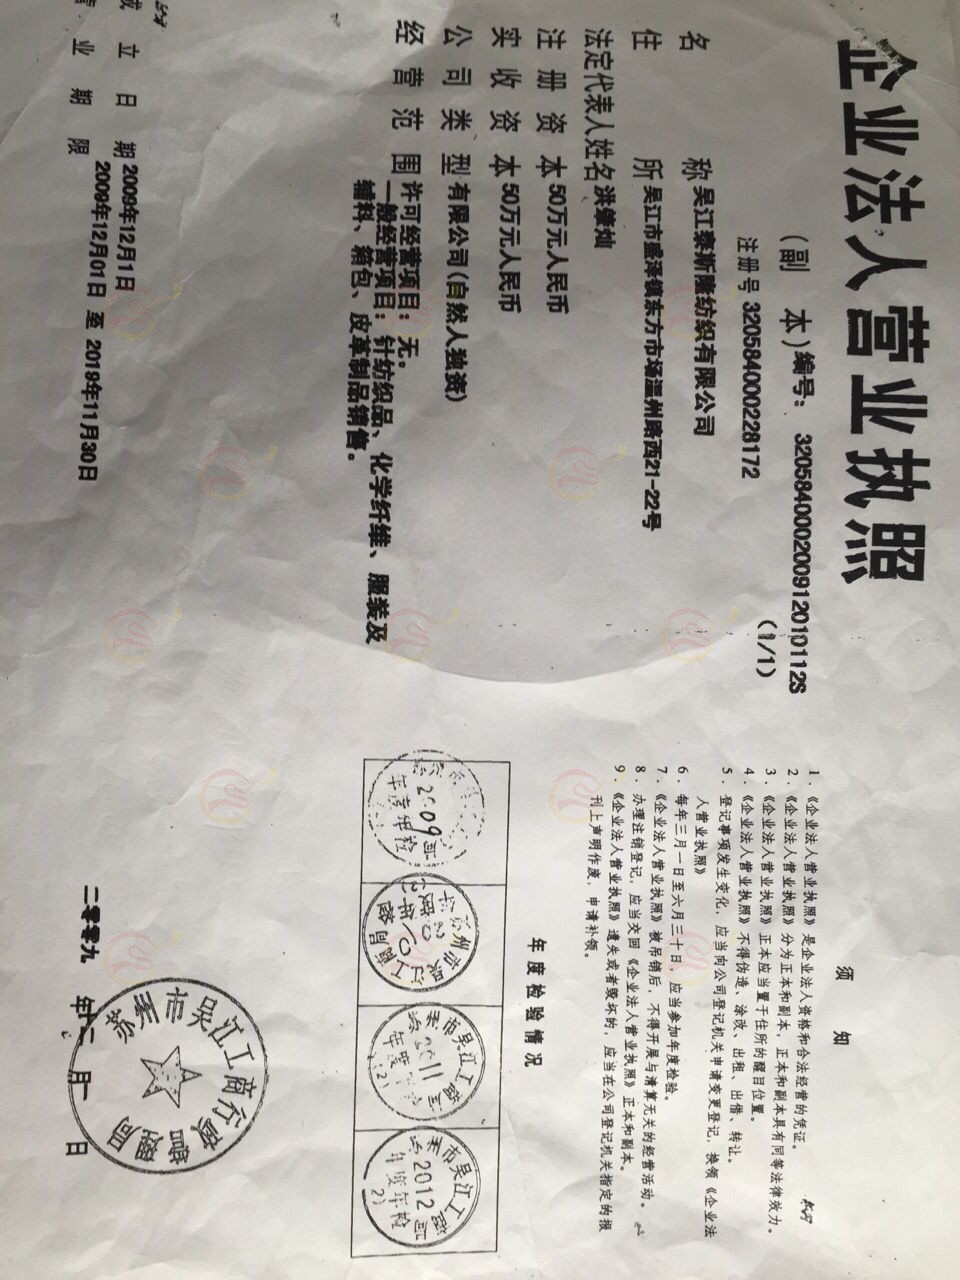 企业法人营业执照
(副 本)编号: 320584000200912010112S
注册号 320584000228172 (1/1)
名称 吴江泰斯隆纺织有限公司
住所 吴江市盛泽镇东方市场温州路西21-22号
法定代表人姓名 洪肇灿
注册资本 50万元人民币
实收资本 50万元人民币
公司类型 有限公司(自然人独资)
经营范围 许可经营项目：无。
一般经营项目：针纺织品、化学纤维、服装及
辅料、箱包、皮革制品销售。
成立日期 2009年12月1日
营业期限 2009年12月01日 至 2019年11月30日
须知
1.《企业法人营业执照》是企业法人资格和合法经营的凭证。
2.《企业法人营业执照》分为正本和副本，正本和副本具有同等法律效力。
3.《企业法人营业执照》正本应当置于住所的醒目位置。
4.《企业法人营业执照》不得伪造、涂改、出租、出借、转让。
5.登记事项发生变化，应当向公司登记机关申请变更登记，换领《企业法
人营业执照》
6.每年三月一日至六月三十日，应当参加年度检验。
7.《企业法人营业执照》被吊销后，不得开展与清算无关的经营活动。
8.办理注销登记，应当交回《企业法人营业执照》正本和副本。
9.《企业法人营业执照》遗失或者毁坏的，应当在公司登记机关指定的报
刊上声明作废，申请补领。
年度检验情况
2009
年度年检
2011
年度
2012
年度年检
苏州市吴江工商行政管理局
二零零九 年十二 月一 日